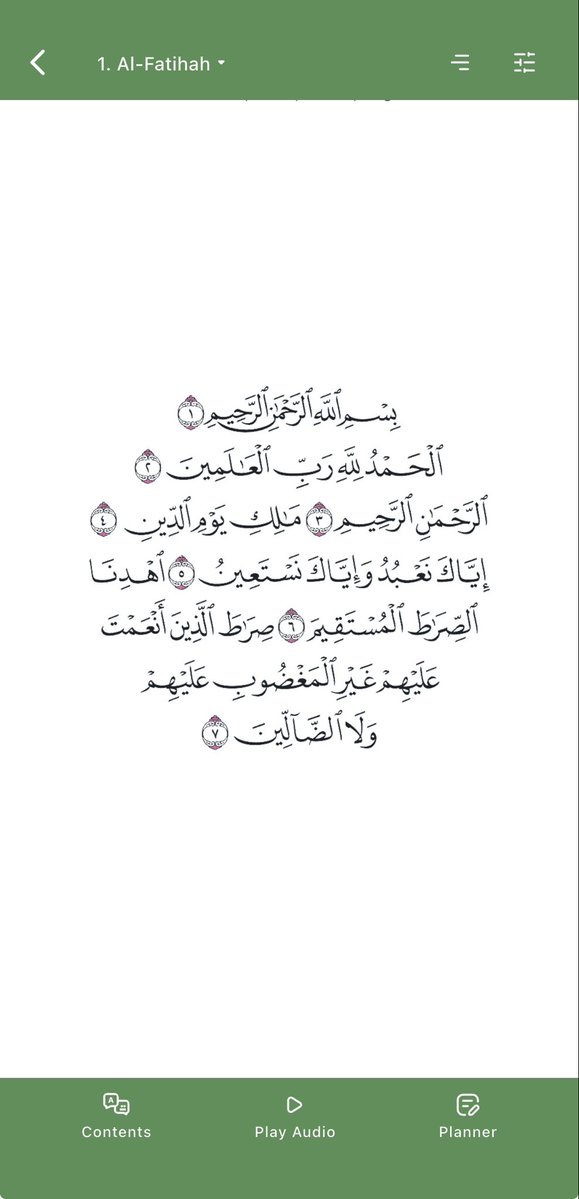 1. Al-Fatihah
بِسْمِ ٱللَّهِ ٱلرَّحْمَٰنِ ٱلرَّحِيمِ ١
ٱلْحَمْدُ لِلَّهِ رَبِّ ٱلْعَٰلَمِينَ ٢
ٱلرَّحْمَٰنِ ٱلرَّحِيمِ ٣ مَٰلِكِ يَوْمِ ٱلدِّينِ ٤
إِيَّاكَ نَعْبُدُ وَإِيَّاكَ نَسْتَعِينُ ٥ ٱهْدِنَا
ٱلصِّرَٰطَ ٱلْمُسْتَقِيمَ ٦ صِرَٰطَ ٱلَّذِينَ أَنْعَمْتَ
عَلَيْهِمْ غَيْرِ ٱلْمَغْضُوبِ عَلَيْهِمْ
وَلَا ٱلضَّآلِّينَ ٧
Contents
Play Audio
Planner